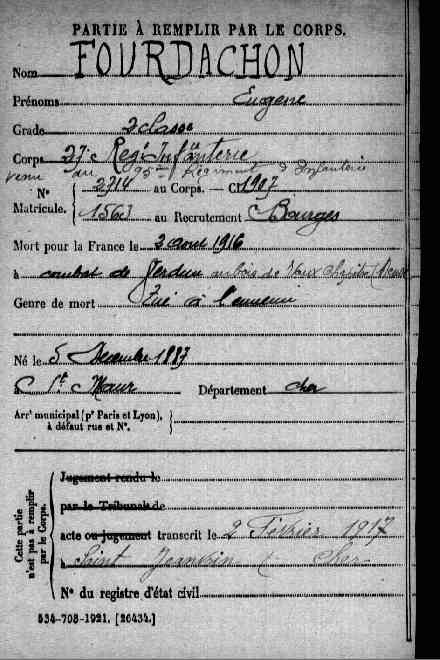 PARTIE À REMPLIR PAR LE CORPS.
Nom FOURDACHON
Prénoms Eugene
Grade 2 classe
Corps 27e Reg. Infanterie
venu du 95e Regiment d'Infanterie
N° 2714 au Corps. — Cl 1907
Matricule. 1563 au Recrutement Bourges
Mort pour la France le 2 aout 1916
à combat de Verdun au bois de Vaux Chapitre (Meuse
Genre de mort Tué à l'ennemi
Né le 5 Decembre 1887
à St Maur Département Cher
Arrt municipal (pr Paris et Lyon),
à défaut rue et N°.
Cette partie
n'est pas à remplir
par le Corps.
Jugement rendu le
par le Tribunal de
acte ou jugement transcrit le 2 Février 1917
à Saint Jeanvrin Cher
N° du registre d'état civil
534-708-1921. [26434.]